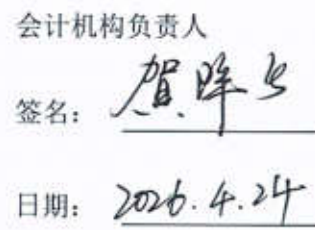 会计机构负责人
签名: 贺晔
日期: 2026.4.24